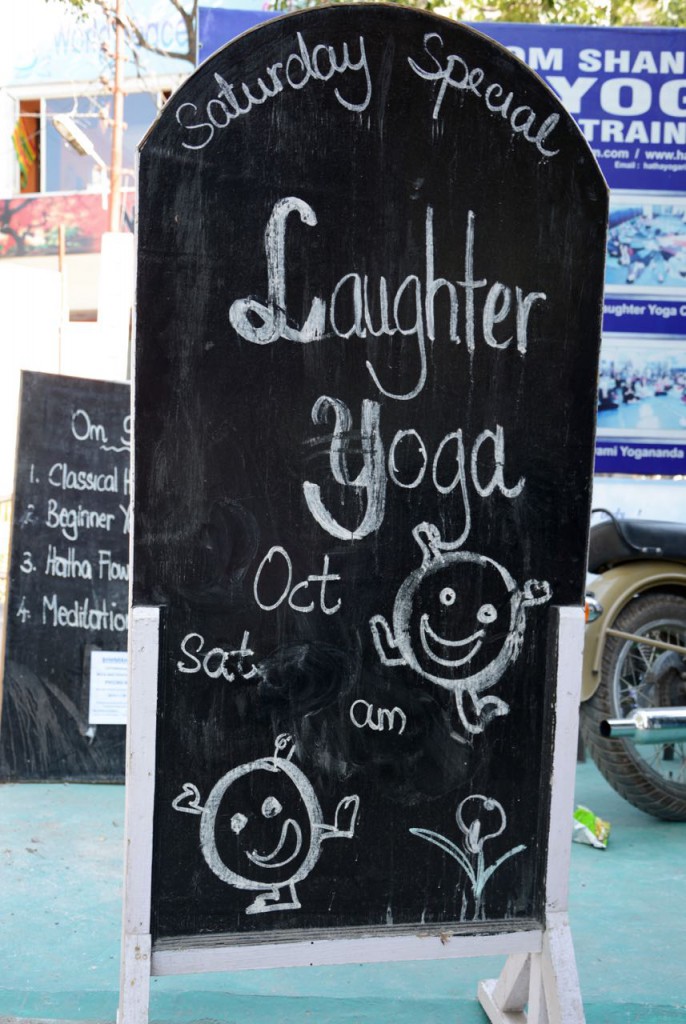 Saturday Special
Laughter
Yoga
Oct
Sat
am
Om
1. Classical
2. Beginner
3. Hatha Flow
4. Meditation
World Peace
OM SHAN
YOG
TRAIN
.com / www.ha
Email : hathayogan
aughter Yoga C
ami Yogananda